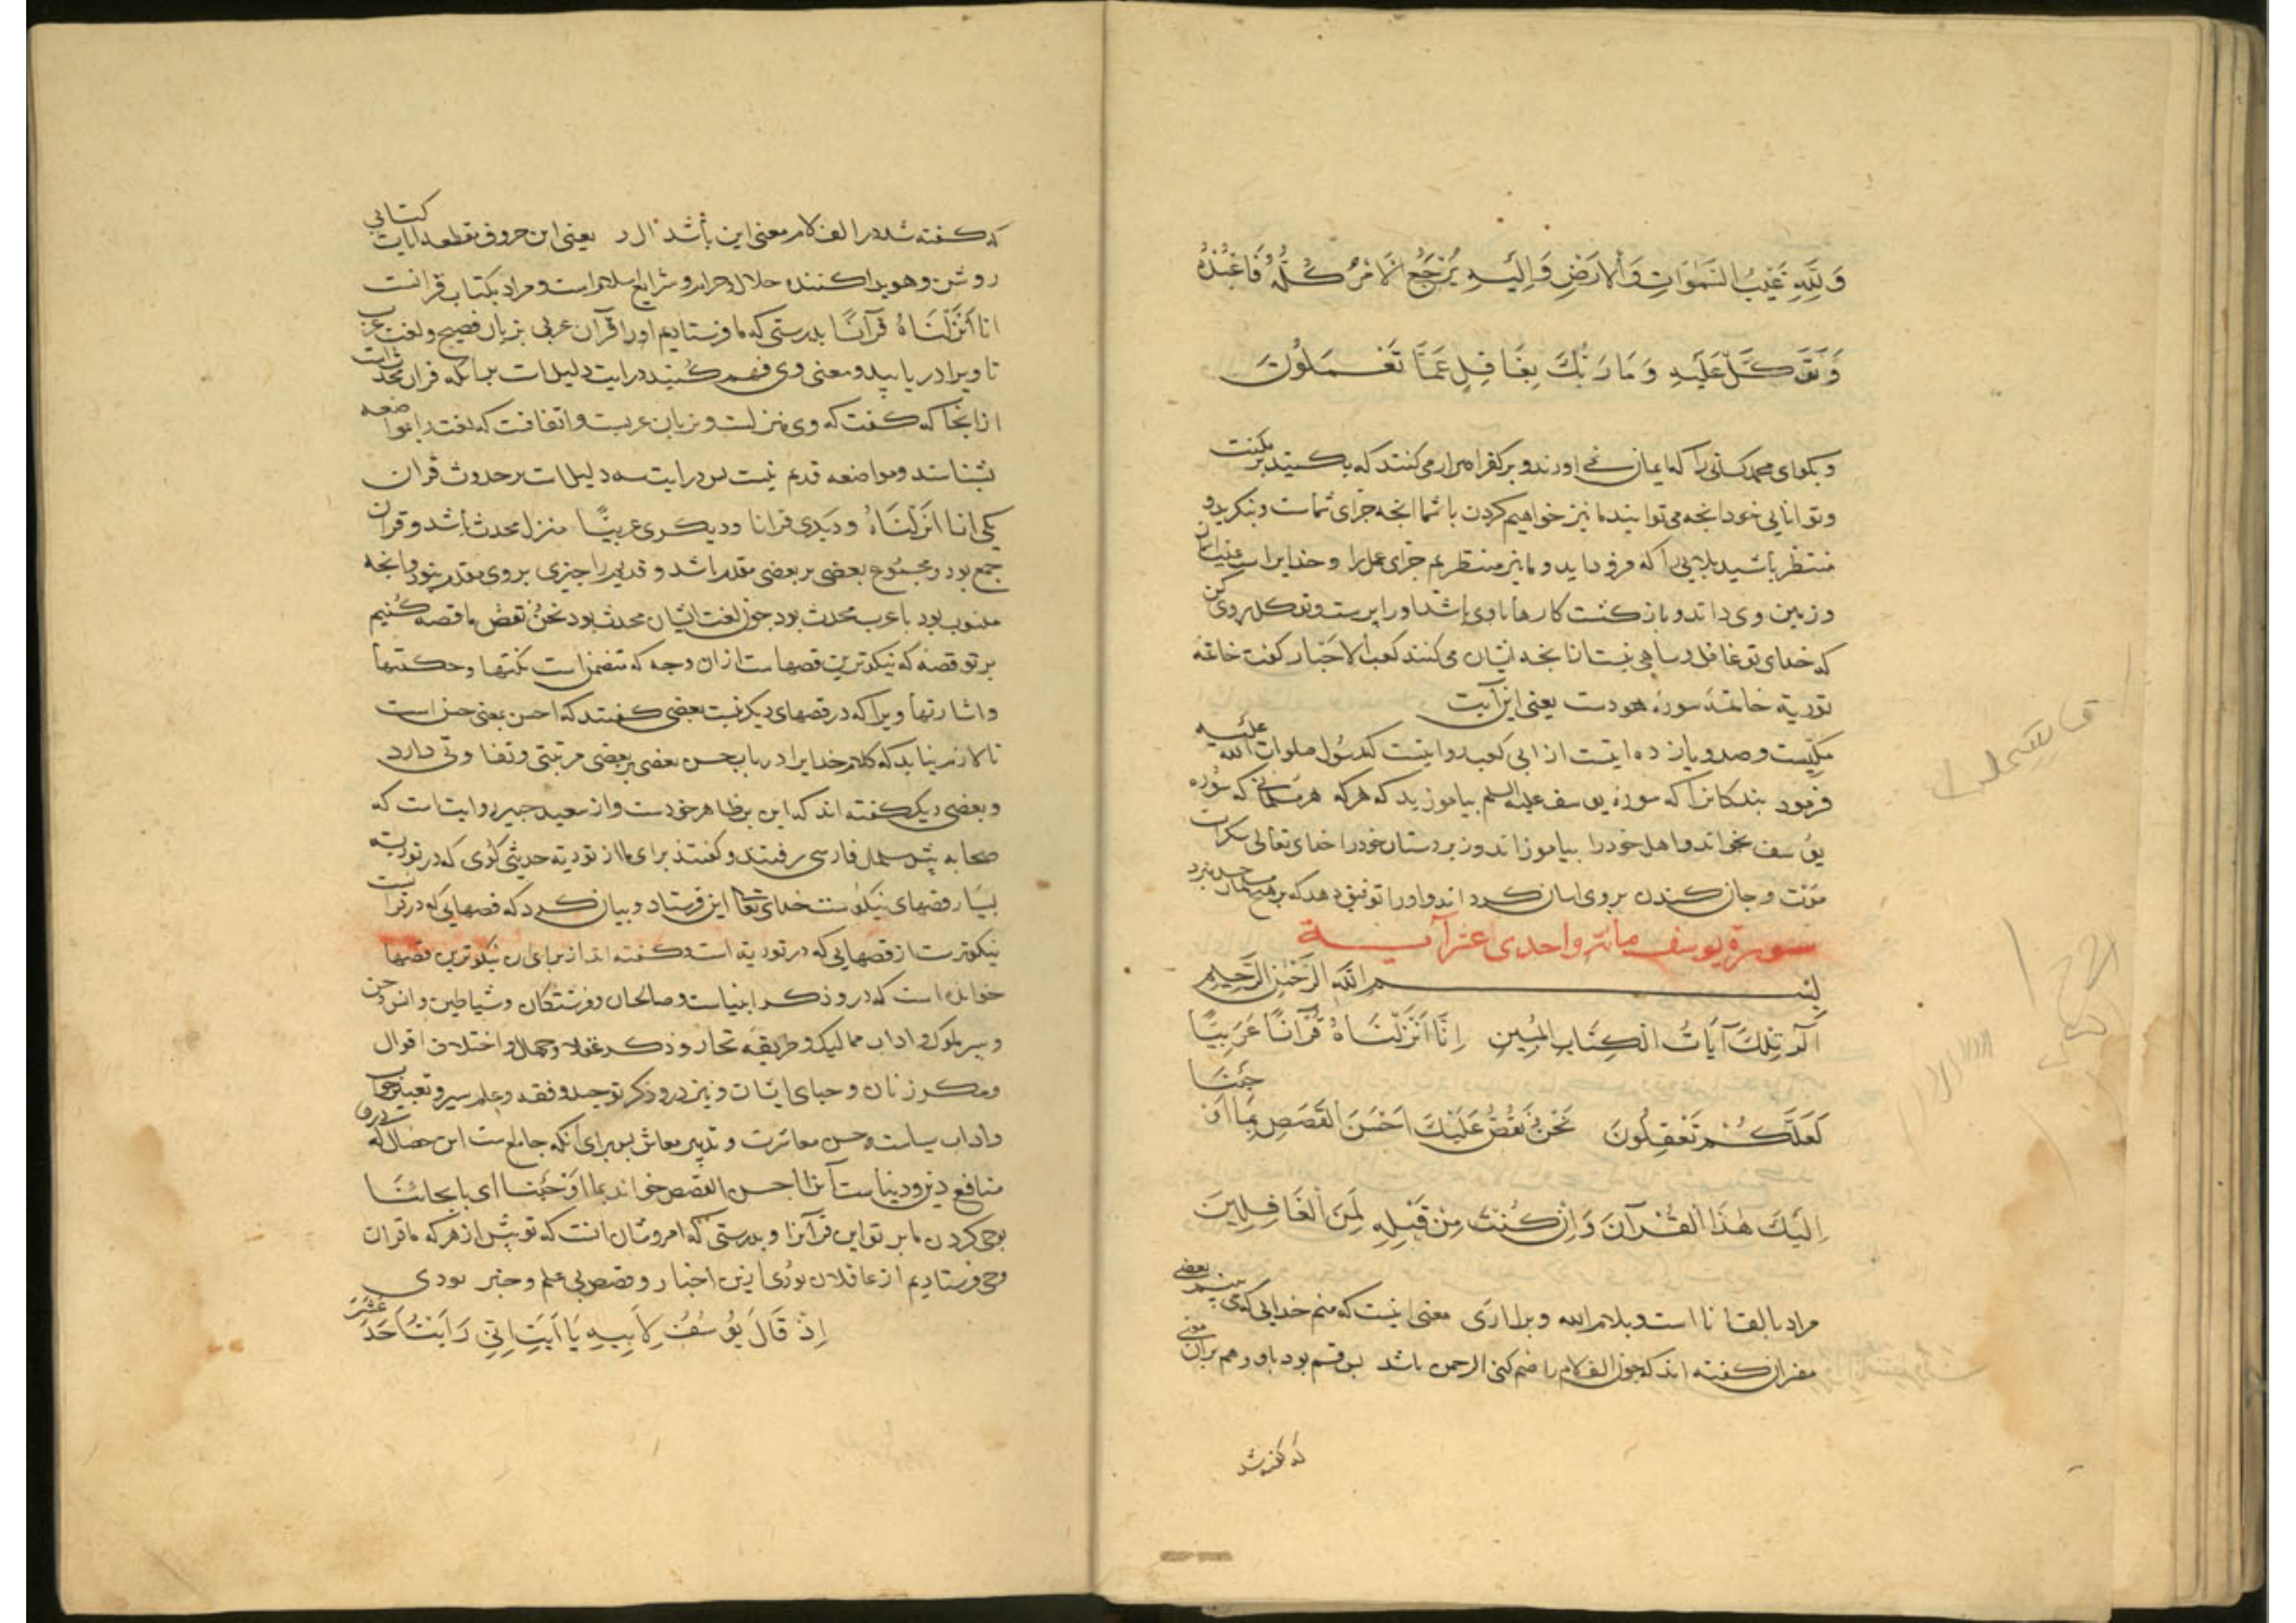 وَلِلَّهِ غَيْبُ السَّمٰوَاتِ وَالْاَرْضِ وَاِلَيْهِ يُرْجَعُ الْاَمْرُ كُلُّهُ فَاعْبُدْهُ
وَتَوَكَّلْ عَلَيْهِ وَمَا رَبُّكَ بِغَافِلٍ عَمَّا تَعْمَلُونَ
وبكوای محمد کسانی را که ایمان نمی اورند و بر کفر اصرار می کنند که بکنید بر مکنت
وتوانایی خود انجه می توانید ما نیز خواهیم کردن با شما انجه جزای شماست وبنکرید و
منتظر باشید بلایی را که فرود اید و ما نیز منتظریم جزای عمل را وخدایراست غیب اسمان
وزمین وی داند و بازکشت کارها باوی باشد اورا پرست وتوکل بروی کن
که خدای تو غافل وساهی نیست از انجه ایشان می کنند کعب الاحبار کفت خاتمه
توریة خاتمه سورهٔ هودست یعنی این آیت
مکیست وصد ویازده ایتست از ابی کعب روایتست که رسول صلوات الله علیه
فرمود بندکانرا که سورهٔ یوسف علیه السلم بیاموزید که هرکه هر مسلمانی که سوره
یوسف بخواند واهل خودرا بیاموزاند وزیردستان خودرا خدای تعالی سکرات
موت وجان کندن بروی اسان کرداند واورا توفیق دهد که بر هیچ مسلمان حسد نبرد
سورة یوسف مائة واحدی عشر آیة
بسم الله الرحمن الرحیم
الٓر تِلْكَ آيَاتُ الْكِتَابِ الْمُبِينِ اِنَّا اَنْزَلْنَاهُ قُرْآنًا عَرَبِيًّا
لَعَلَّكُمْ تَعْقِلُونَ نَحْنُ نَقُصُّ عَلَيْكَ اَحْسَنَ الْقَصَصِ بِمَا اَوْحَيْنَا
اِلَيْكَ هٰذَا الْقُرْآنَ وَاِنْ كُنْتَ مِنْ قَبْلِهِ لَمِنَ الْغَافِلِينَ
مراد بالف انا است وبلام الله وبرا اری معنی اینست که منم خدایی که می بینم بعضی
مفسران کفته اند که چون الف لام را ضم کنی الرحمن باشد پس قسم بود باو وهم بران
که کفته شد
که کفته شد در الف لام معنی این باشد ال ر یعنی این حروف مقطعه ایات کتابی
روشن وهویدا کننده حلال وحرام وشرایع اسلام است ومراد بکتاب قرانست
انا اَنْزَلْنَاهُ قرآنًا بدرستی که ما فرستادیم اورا قرآن عربی بزبان فصیح ولغت عرب
تا ویرا دریابید ومعنی وی فهم کنید در ایت دلیل است برانکه قران محدث است
از انجا که کفت که وی منزلست وبزبان عربست واتفاقست که لغت را مواضعه
بشناسند ومواضعه قدیم نیست پس در ایت سه دلیل است بر حدوث قران
یکی انا انزلناه ودیکری قرانا ودیکری عربیًّا منزل محدث باشد وقران
جمع بود ومجموع بعضی بر بعضی مقدم باشد وقدیم را چیزی بروی مقدم نبود وانجه
منسوب بود با عرب محدث بود چون لغت ایشان محدث بود نحن نقص ما قصه کنیم
بر تو قصهٔ که نیکوترین قصهاست ازان وجه که متضمن است نکتها وحکمتها
واشارتها ویرا که در قصهای دیکر نیست بعضی کفتند که احسن بمعنی حسن است
تا لازم نیاید که کلام خدایرا در باب حسن بعضی بر بعضی مرتبتی وتفاوتی دارد
وبعضی دیکر کفته اند که این بر ظاهر خودست واز سعید جبیر روایت است که
صحابه پیش سلمان فارسی رفتند وکفتند برای ما از توریة حدیثی کوی که در توریة
بسیار قصهای نیکوست خدای تعالی این فرستاد وبیان کرد که قصهایی که در قرانست
نیکوترست از قصهایی که در توریة است وکفته اند از برای ان نیکوترین قصها
خوانده است که درو ذکر انبیاست وصالحان وفرشتکان وشیاطین وانس وجن
وسیر ملوک واداب ممالیک وطریقه تجار وذکر عقلا وجهال واختلاف اقوال
ومکر زنان وحیای ایشان ونیز درو ذکر توحید وفقه وعلم سیر وتعبیر خواب
واداب سیاست وحسن معاشرت وتدبیر معاش پس برای انکه جامع ست این خصال که درو
منافع دین ودنیاست آنرا احسن القصص خواند بما اوحینا ای بایحائنا
بوحی کردن ما بر تو این قرآنرا وبدرستی که امر وشان انست که تو پیش از هر که ما قران
وحی فرستادیم از غافلان بودی ازین اخبار وقصص بی علم وخبر بودی
اِذْ قَالَ يُوسُفُ لِاَبِيهِ يَا اَبَتِ اِنِّي رَاَيْتُ اَحَدَ عَشَرَ